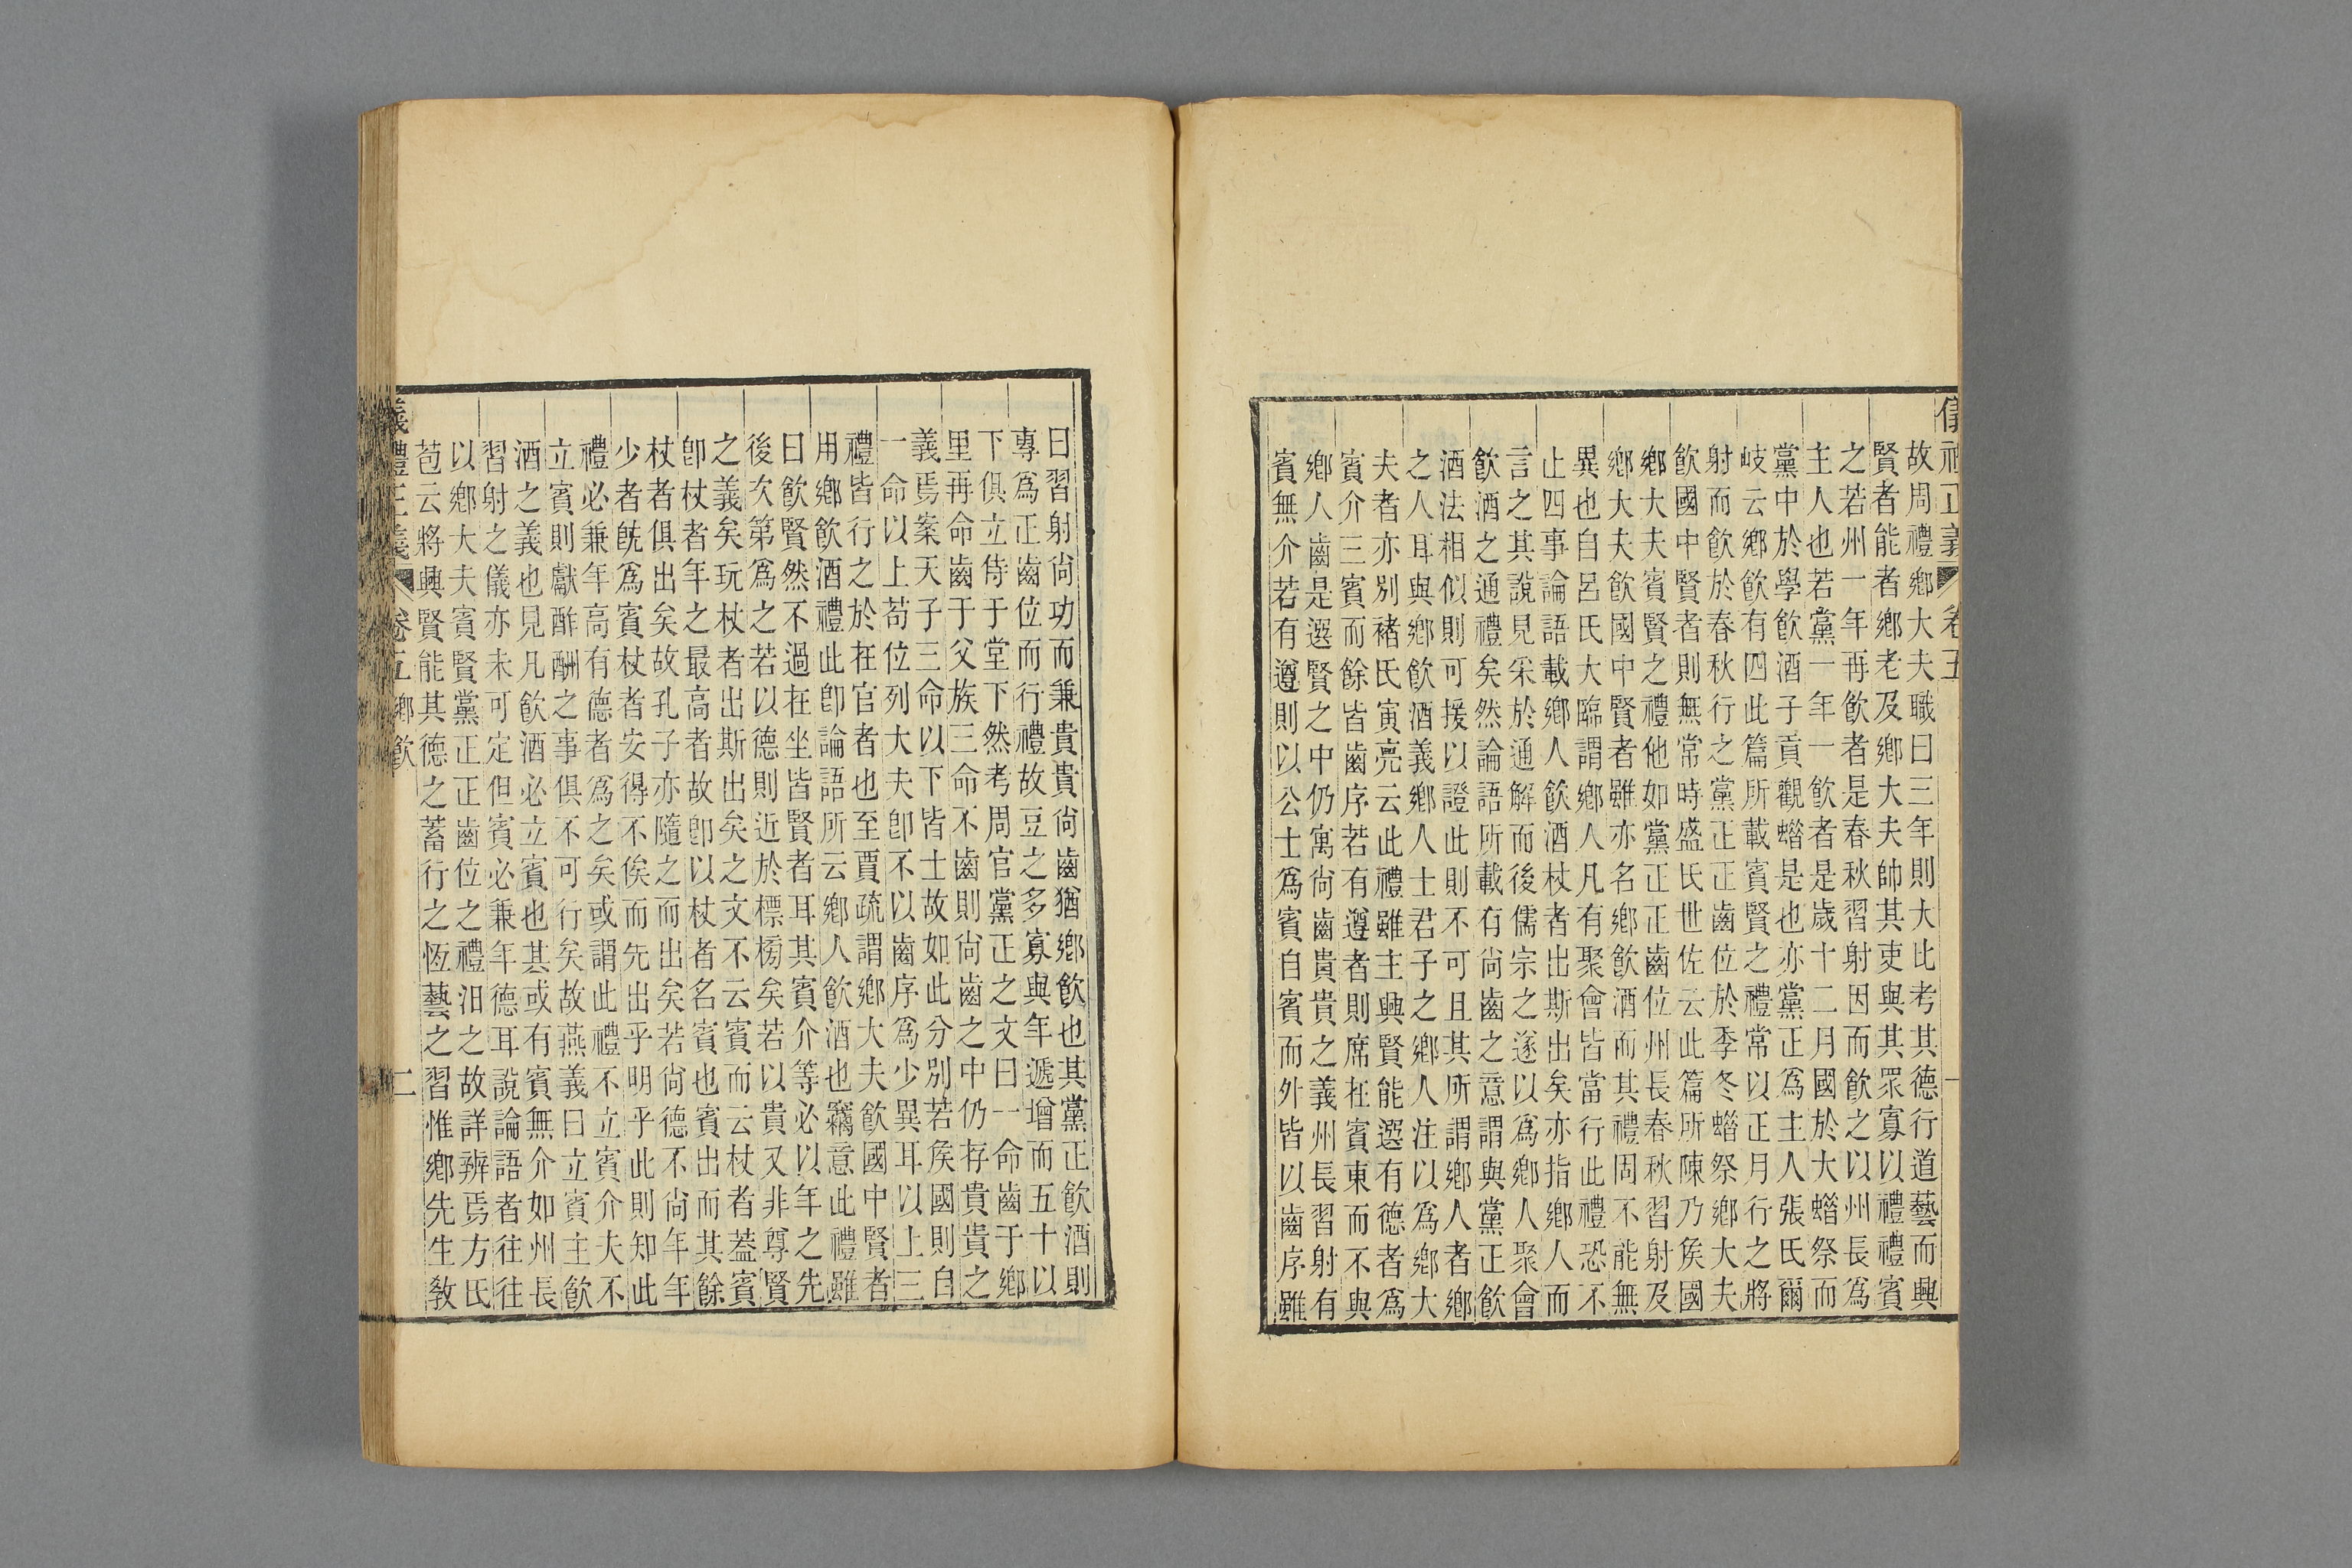 儀禮正義 卷五 一
故周禮鄉大夫職曰三年則大比考其德行道藝而興
賢者能者鄉老及鄉大夫帥其吏與其眾寡以禮禮賓
之若州一年再飲者是春秋習射因而飲之以州長爲
主人也若黨一年一飲者是歲十二月國於大蜡祭而
黨中於學飲酒子貢觀蜡是也亦黨正爲主人張氏爾
岐云鄉飲有四此篇所載賓賢之禮常以正月行之將
射而飲於春秋行之黨正正齒位於季冬蜡祭鄉大夫
飲國中賢者則無常時盛氏世佐云此篇所陳乃矦國
鄉大夫賓賢之禮他如黨正正齒位州長春秋習射及
鄉大夫飲國中賢者雖亦名鄉飲酒而其禮固不能無
異也自呂氏大臨謂鄉人凡有聚會皆當行此禮恐不
止四事論語載鄉人飲酒杖者出斯出矣亦指鄉人而
言之其說見采於通解而後儒宗之遂以爲鄉人聚會
飲酒之通禮矣然論語所載有尚齒之意謂與黨正飲
酒法相似則可援以證此則不可且其所謂鄉人者鄉
之人耳與鄉飲酒義鄉人士君子之鄉人注以爲鄉大
夫者亦別褚氏寅亮云此禮雖主興賢能選有德者爲
賓介三賓而餘皆齒序若有遵者則席在賓東而不與
鄉人齒是選賢之中仍寓尚齒貴貴之義州長習射有
賓無介若有遵則以公士爲賓自賓而外皆以齒序雖
曰習射尚功而兼貴貴尚齒猶鄉飲也其黨正飲酒則
專爲正齒位而行禮故豆之多寡與年遞增而五十以
下俱立侍于堂下然考周官黨正之文曰一命齒于鄉
里再命齒于父族三命不齒則尚齒之中仍存貴貴之
義焉案天子三命以下皆士故如此分別若矦國則自
一命以上苟位列大夫卽不以齒序爲少異耳以上三
禮皆行之於在官者也至賈疏謂鄉大夫飲國中賢者
用鄉飲酒禮此卽論語所云鄉人飲酒也竊意此禮雖
曰飲賢然不過在坐皆賢者耳其賓介等必以年之先
後次第爲之若以德則近於標榜矣若以貴又非尊賢
之義矣玩杖者出斯出矣之文不云賓而云杖者蓋賓
卽杖者年之最高者故卽以杖者名賓也賓出而其餘
杖者俱出矣故孔子亦隨之而出矣若尚德不尚年年
少者旣爲賓杖者安得不俟而先出乎明乎此則知此
禮必兼年高有德者爲之矣或謂此禮不立賓介夫不
立賓則獻酢酬之事俱不可行矣故燕義曰立賓主飲
酒之義也見凡飲酒必立賓也其或有賓無介如州長
習射之儀亦未可定但賓必兼年德耳說論語者往往
以鄉大夫賓賢黨正正齒位之禮汨之故詳辨焉方氏
苞云將興賢能其德之蓄行之恆藝之習惟鄉先生敎
儀禮正義 卷五鄉飲 二